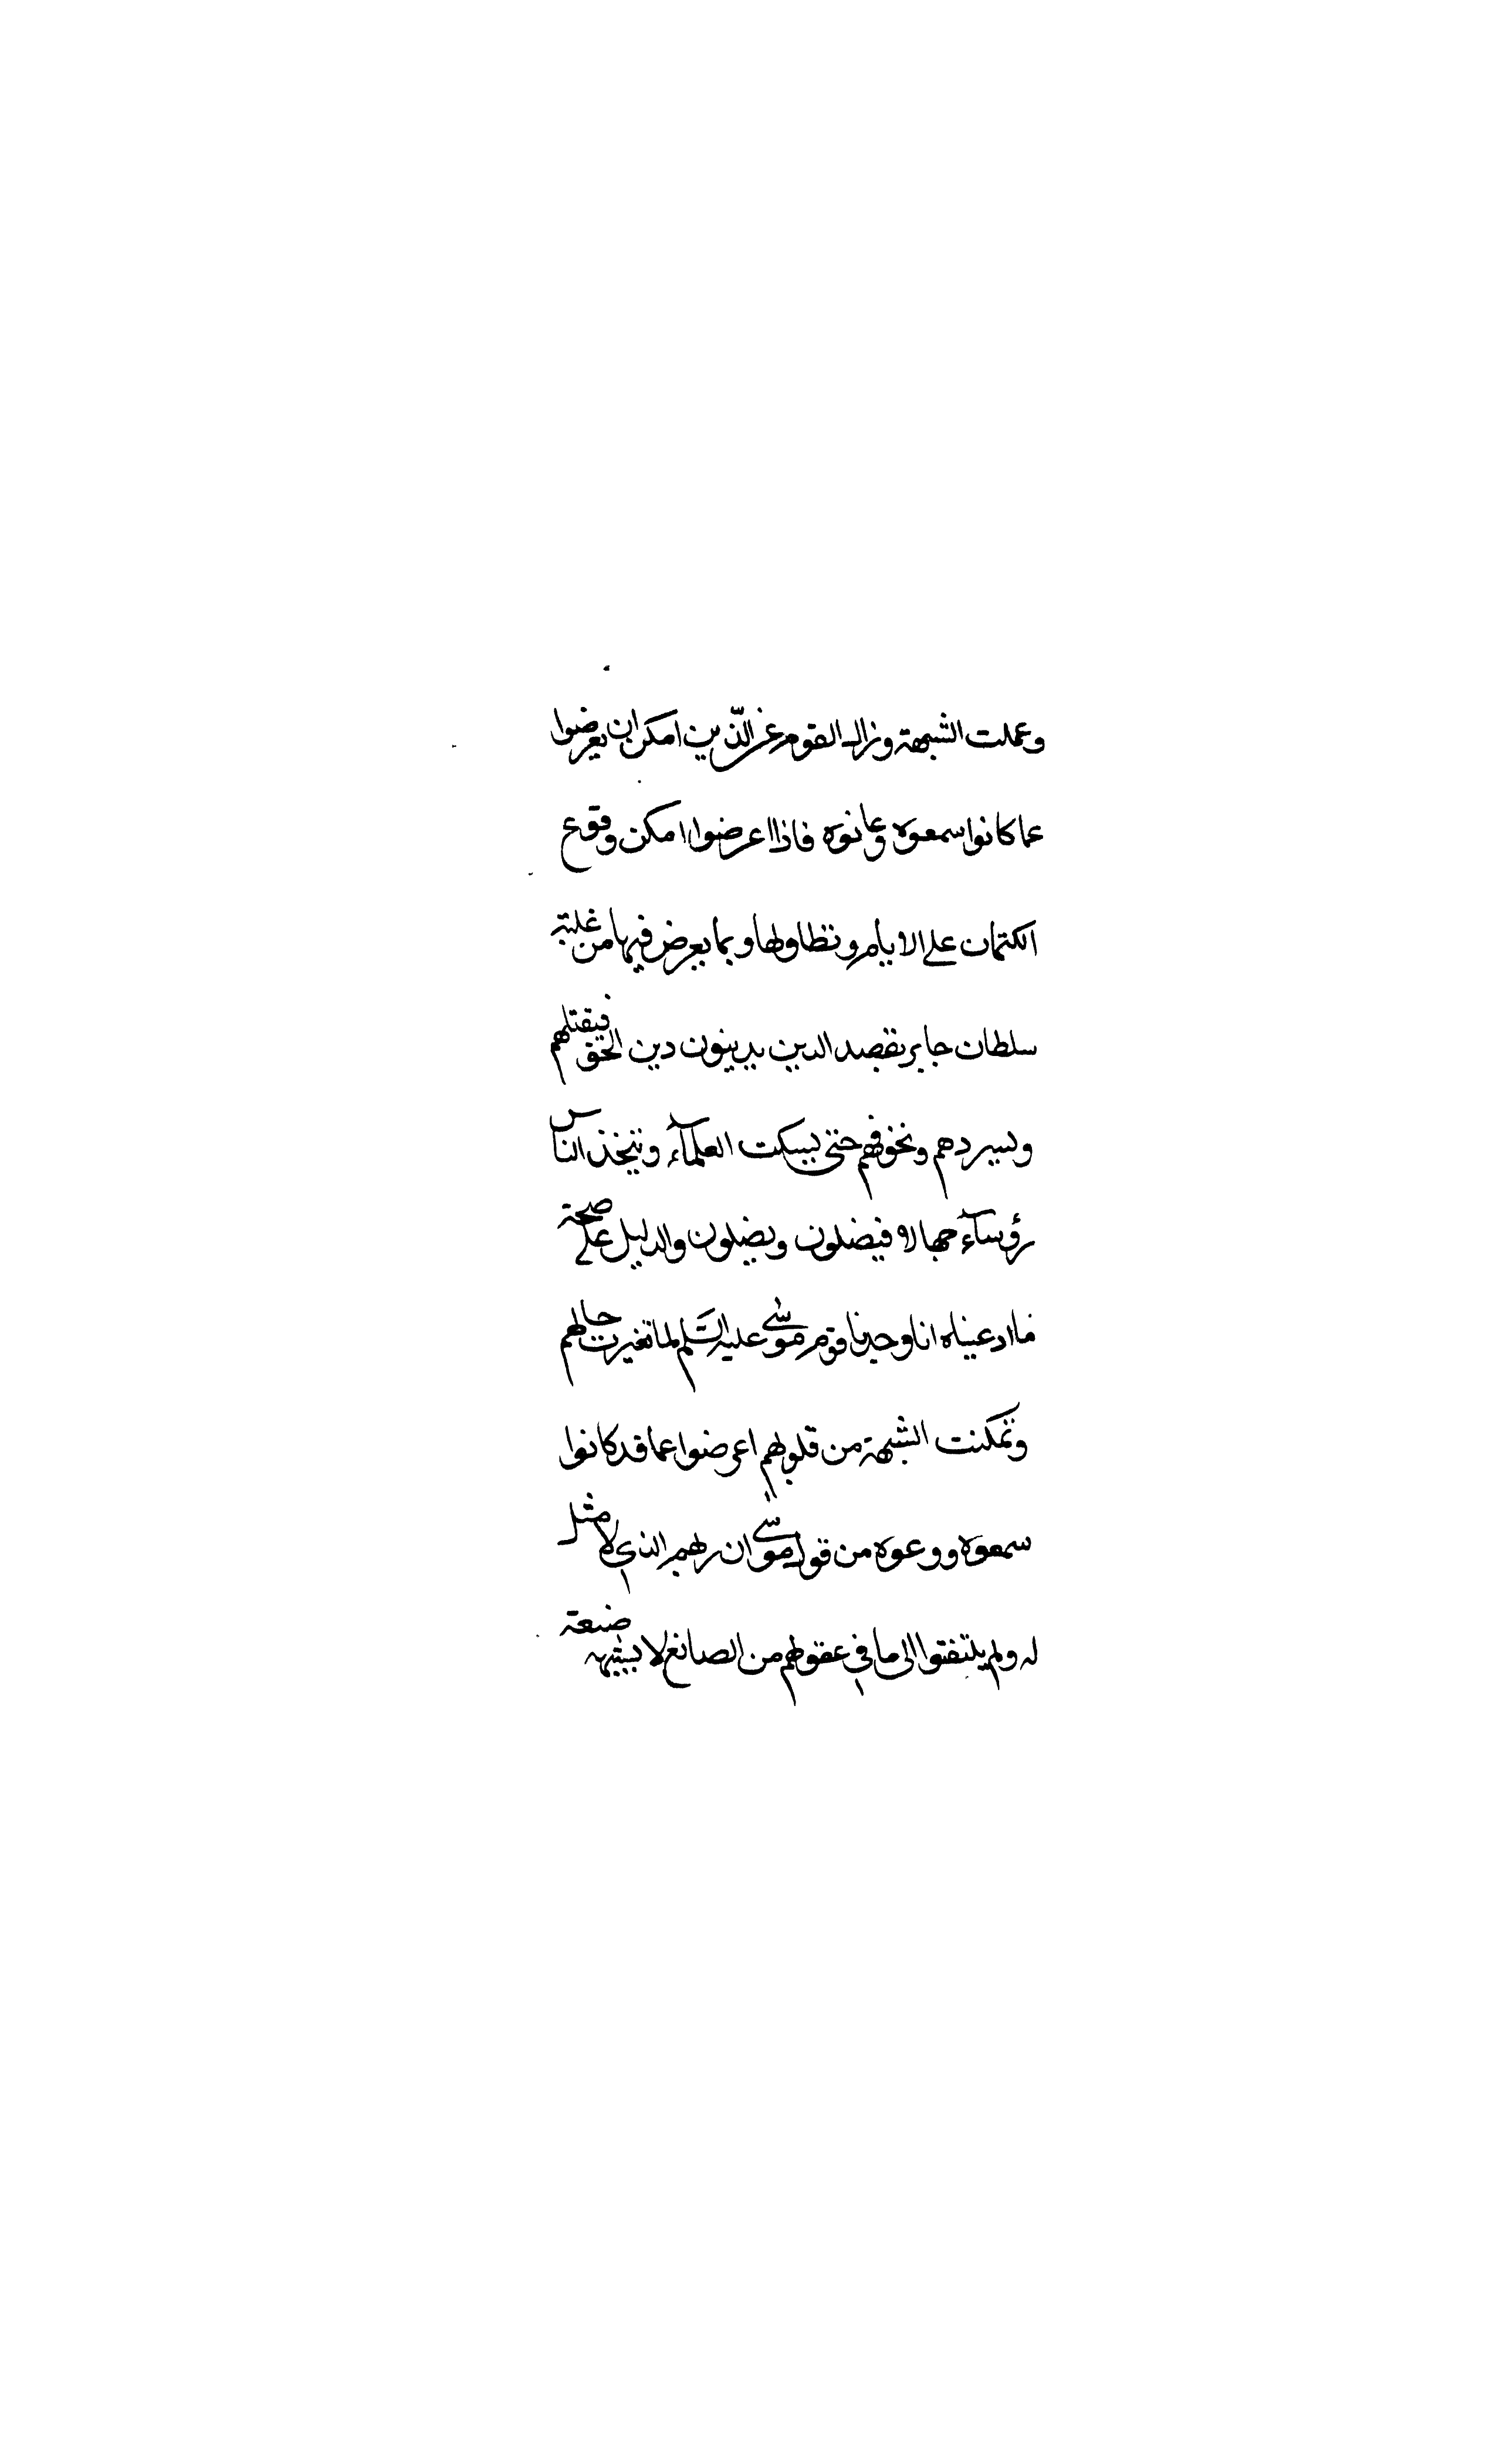 وعملت الشبهة وزال القوم عن الذين امكن ان يعرضوا
عما كانوا سمعوه وعانوه فاذا اعرضوا امكن وقوع
الكتمان على الايام وتطاولها وبما يعرض فيها من غلبة
سلطان جاير يقصد الدين يدينون دين الحق فيقتلهم
ويسيردهم ونخوفهم حتى يسكت العلمآء وتتخذ الناس
رؤسآء جهالا فيضلون ويضلون والدليل على صحة
ما ادعيناه انا وجدنا قوم موسى عليه السلم لما تغيرت حالهم
وتمكنت الشبهة من قلوبهم اعرضوا عما قد كانوا
سمعوه ووعوه من قول موسى ان ربهم الذي لا مثل
له ولم يلتفتوا الى ما في عقولهم من الصانع لا يشبهه صنعة